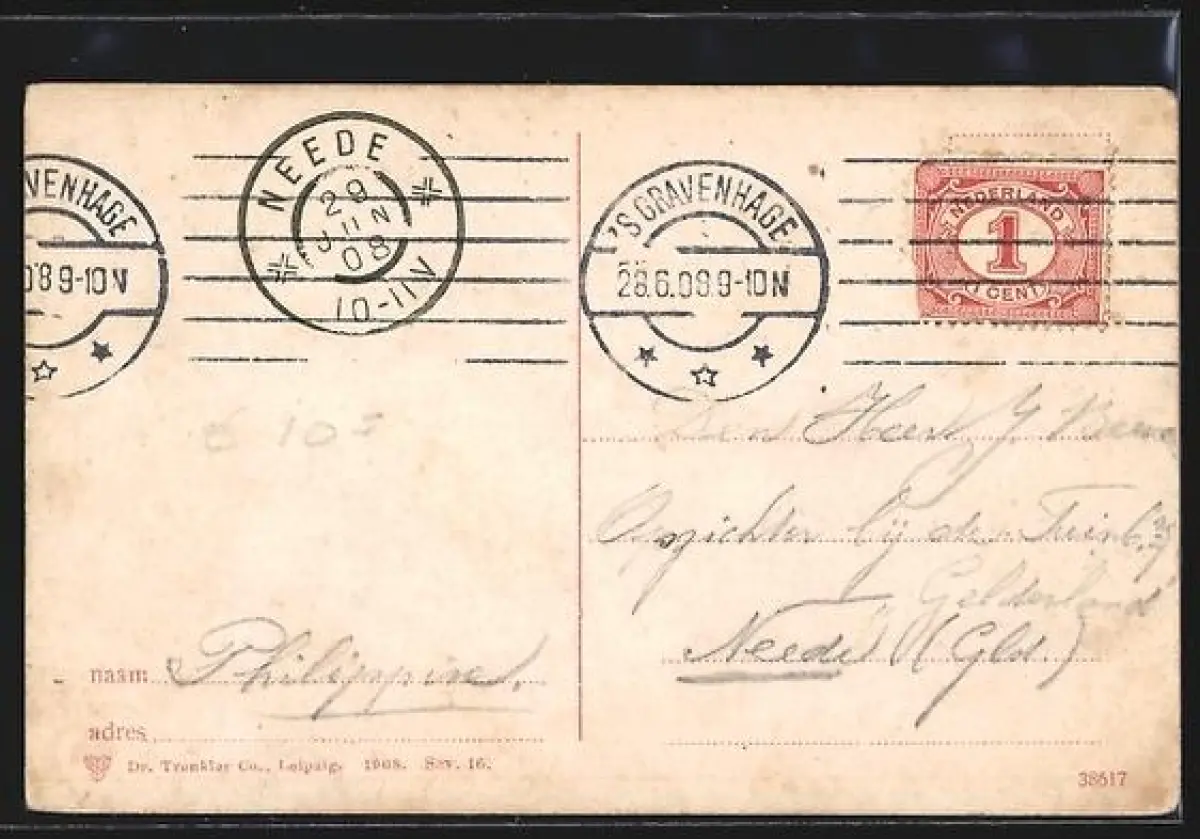 'S GRAVENHAGE
28.6.08 9-10 N
NEEDE
29
JUN
08
10-11 N
VENHAGE
08 9-10 N
NEDERLAND
1
1 CENT
Den Heer J
Opzichter bij den
Gelderland
Neede (Gld.)
naam Philippine.
adres
Dr. Trenkler Co., Leipzig. 1908. Sev. 16.
38617